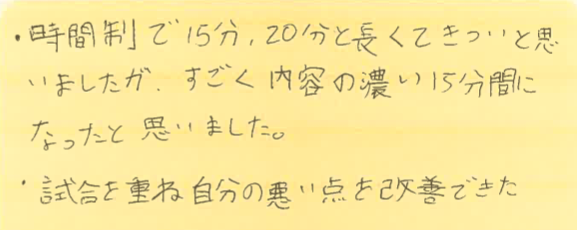 ・時間制で15分、20分と長くてきついと思
いましたが、すごく内容の濃い15分間に
なったと思いました。
・試合を重ね自分の悪い点を改善できた